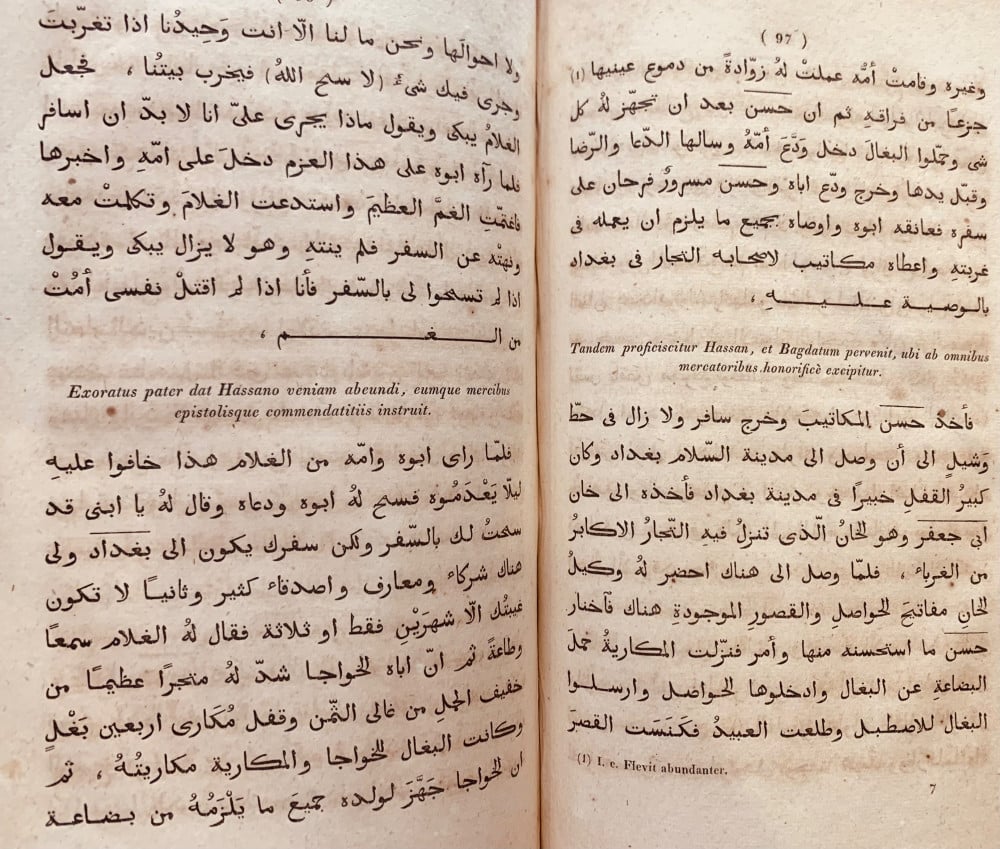 ولا احوالَها ونحن ما لنا الّا انت وَحِيدُنا اذا تغرّبتَ
وجرى فيك شىءٌ (لا سمح اللهُ) فيخرب بيتُنا ، فجعل
الغلامُ يبكى ويقول ماذا يجرى علىّ انا لا بدّ ان اسافر
فلما رآه ابوه على هذا العزم دخلَ على امّهِ واخبرها
فاغتمّتِ الغمَّ العظيمَ واستدعت الغلامَ وتكلمتْ معه
ونهتْه عن السفر فلم ينتهِ وهو لا يزال يبكى ويقول
اذا لم تسمحوا لى بالسّفر فأنا اذا لم اقتلْ نفسى أمُتْ
من الغم ،
Exoratus pater dat Hassano veniam abeundi, eumque mercibus
epistolisque commendatitiis instruit.
فلمّا راى ابوه وامّه من الغلام هذا خافوا عليهِ
ليلّا يَعْدَمُوه فسمح لهُ ابوه ودعاه وقال لهُ يا ابنى قد
سمحتُ لك بالسّفر ولكن سفرك يكون الى بغداد ولى
هناك شركاءٌ ومعارف واصدقاءٌ كثير وثانيًا لا تكون
غيبتُك الّا شهرَيْنِ فقط او ثلاثة فقال لهُ الغلام سمعًا
وطاعةً ثم انّ اباه الخواجا شدّ لهُ متجرًا عظيمًا من
خفيف الحمل من غالى الثّمن وقفل مُكَارى اربعين بَغْلٍ
وكانت البغال للخواجا والمكارية مكاريتُهُ ، ثم
ان الخواجا جَهَّزَ لولده جميعَ ما يَلْزَمُهُ من بضاعة
( 97 )
وغيره وقامتْ أمُّه عملتْ لهُ زوّادةً من دموع عينيها (1)
جزعًا من فراقهِ ثم ان حسن بعد ان تجهّز لهُ كل
شى وحمّلوا البغالَ دخل وَدَّعَ أمَّهُ وسالها الدّعا والرّضا
وقبّل يدها وخرج ودّع اباه وحسن مسرورٌ فرحان على
سفره فعانقه ابوه واوصاه بجميع ما يلزم ان يعمله فى
غربتهِ واعطاه مكاتيب لاصحابه التجار فى بغداد
بالوصية عليهِ ،
Tandem proficiscitur Hassan, et Bagdatum pervenit, ubi ab omnibus
mercatoribus honorificè excipitur.
فأخذ حسن المكاتيبَ وخرج سافر ولا زال فى حطّ
وَشيلٍ الى أن وصل الى مدينة السّلام بغداد وكان
كبيرُ القفلِ خبيرًا فى مدينة بغداد فأخذه الى خان
ابى جعفر وهو الخانُ الّذى تنزلُ فيهِ التّجارُ الاكابرُ
من الغرباءِ ، فلمّا وصل الى هناك احضر لهُ وكيلُ
الخانِ مفاتيحَ الحواصلِ والقصورِ الموجودةِ هناك فآختار
حسن ما استحسنه منها وأمر فنزّلت المكاريةُ حملَ
البضاعةِ عن البغال وادخلوها الحواصل وارسلوا
البغال للاصطبل وطلعت العبيدُ فكَنَسَت القصرَ
(1) I. e. Flevit abundanter.
7